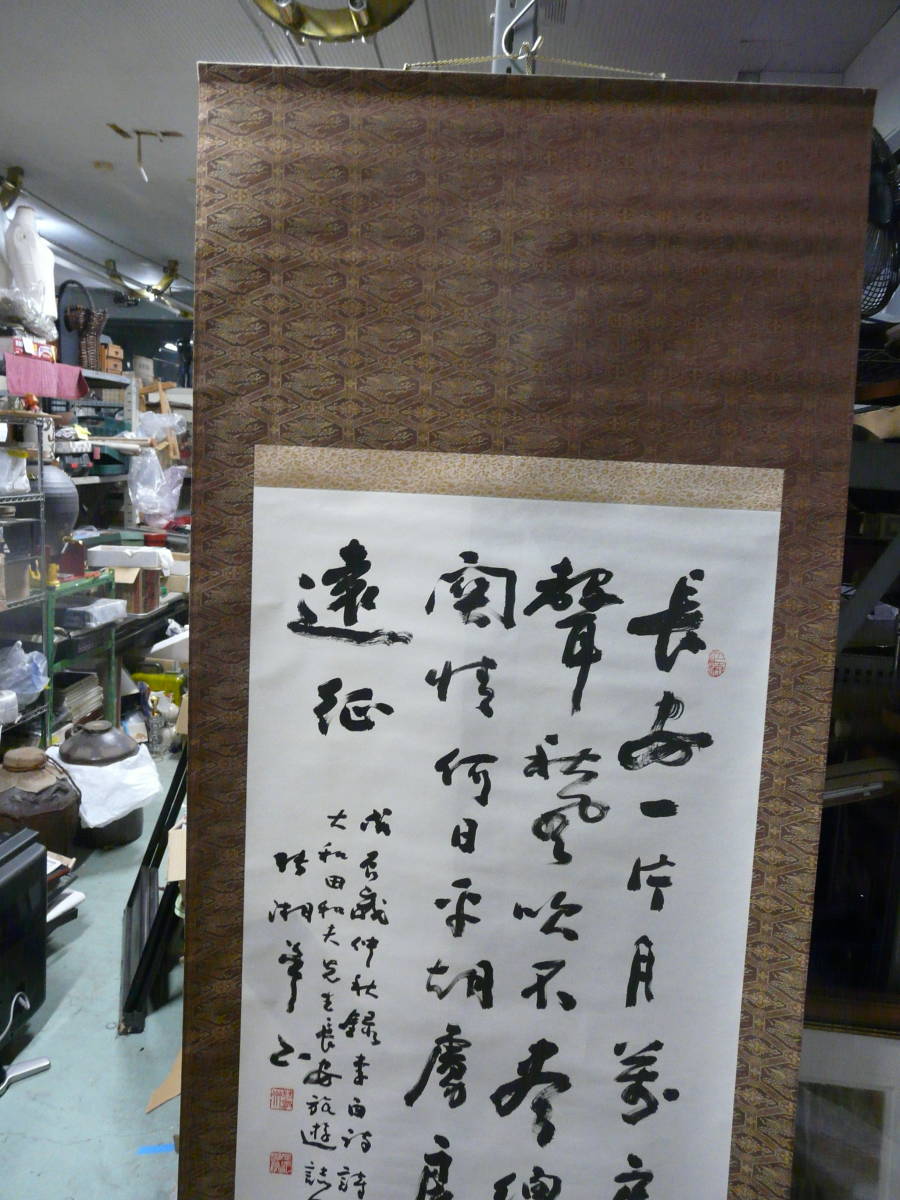 長安一片月萬户
聲秋風吹不盡總
關情何日平胡虜良
遠征
戊辰歲仲秋錄李白詩
大和田和夫先生長安旅遊誌
湘草書